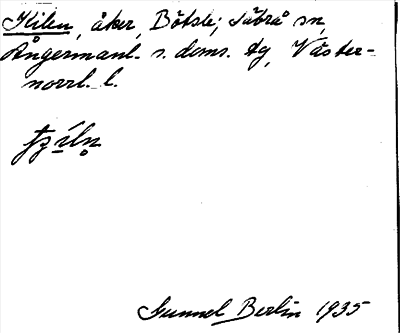 Kilen, åker, Bölsle; Säbrå sn,
Ångermanl. s. doms. dg, Väster-
norrl. l.
Gunnel Berlin 1935